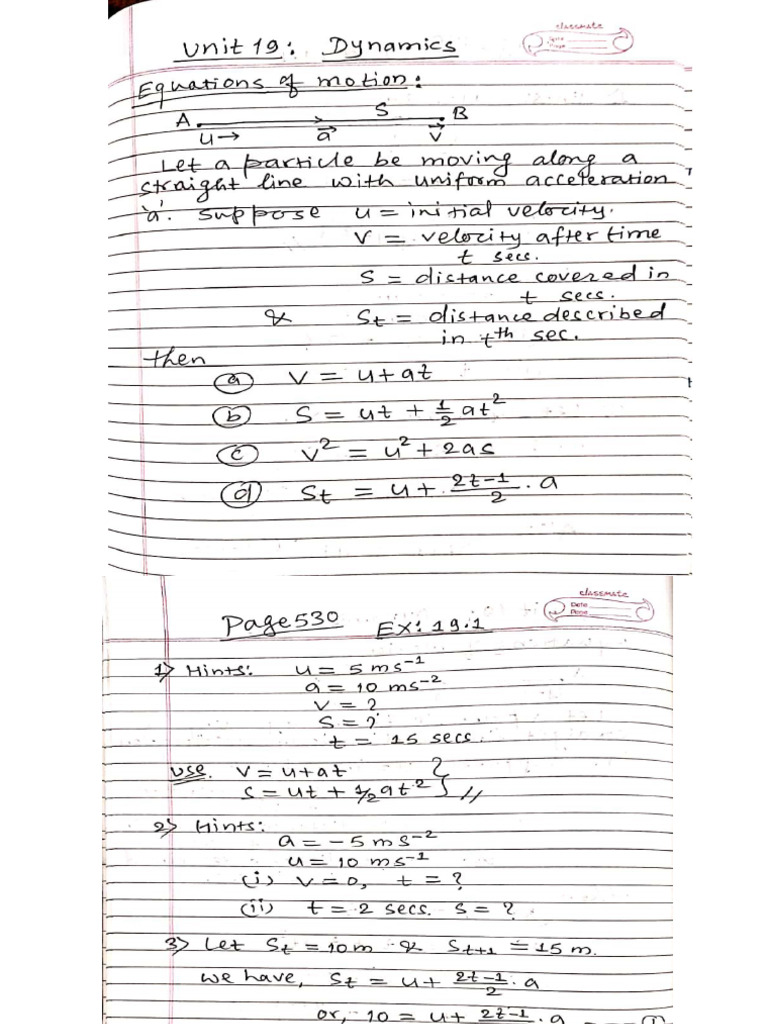 classmate
Date
Page
Unit 19: Dynamics
Equations of motion:
A S B
u→ a→ v→
Let a particle be moving along a
straight line with uniform acceleration
'a'. Suppose u = initial velocity.
v = velocity after time
t secs.
S = distance covered in
t secs.
& St = distance described
in tth sec.
then
(a) v = u+at
(b) S = ut + 1/2 at²
(c) v² = u² + 2as
(d) St = u + (2t-1)/2 . a
classmate
Date
Page
Page 530 EX: 19.1
1) Hints: u = 5 ms⁻¹
a = 10 ms⁻²
v = ?
S = ?
t = 15 secs.
use. v = u+at
s = ut + 1/2 at² } //
2) Hints:
a = -5 ms⁻²
u = 10 ms⁻¹
(i) v = 0, t = ?
(ii) t = 2 secs. s = ?
3) Let St = 10m & St+1 = 15 m.
we have, St = u + (2t-1)/2 . a
or, 10 = u + (2t-1)/2 . a — (1)